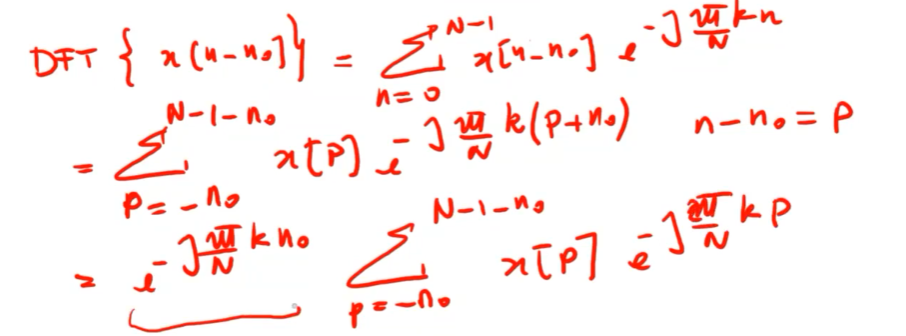 DFT { x(n-n₀)} = Σ_{n=0}^{N-1} x[n-n₀] e^{-j 2π/N kn}
= Σ_{p=-n₀}^{N-1-n₀} x[p] e^{-j 2π/N k(p+n₀)} n-n₀ = p
= e^{-j 2π/N k n₀} Σ_{p=-n₀}^{N-1-n₀} x[p] e^{-j 2π/N k p}